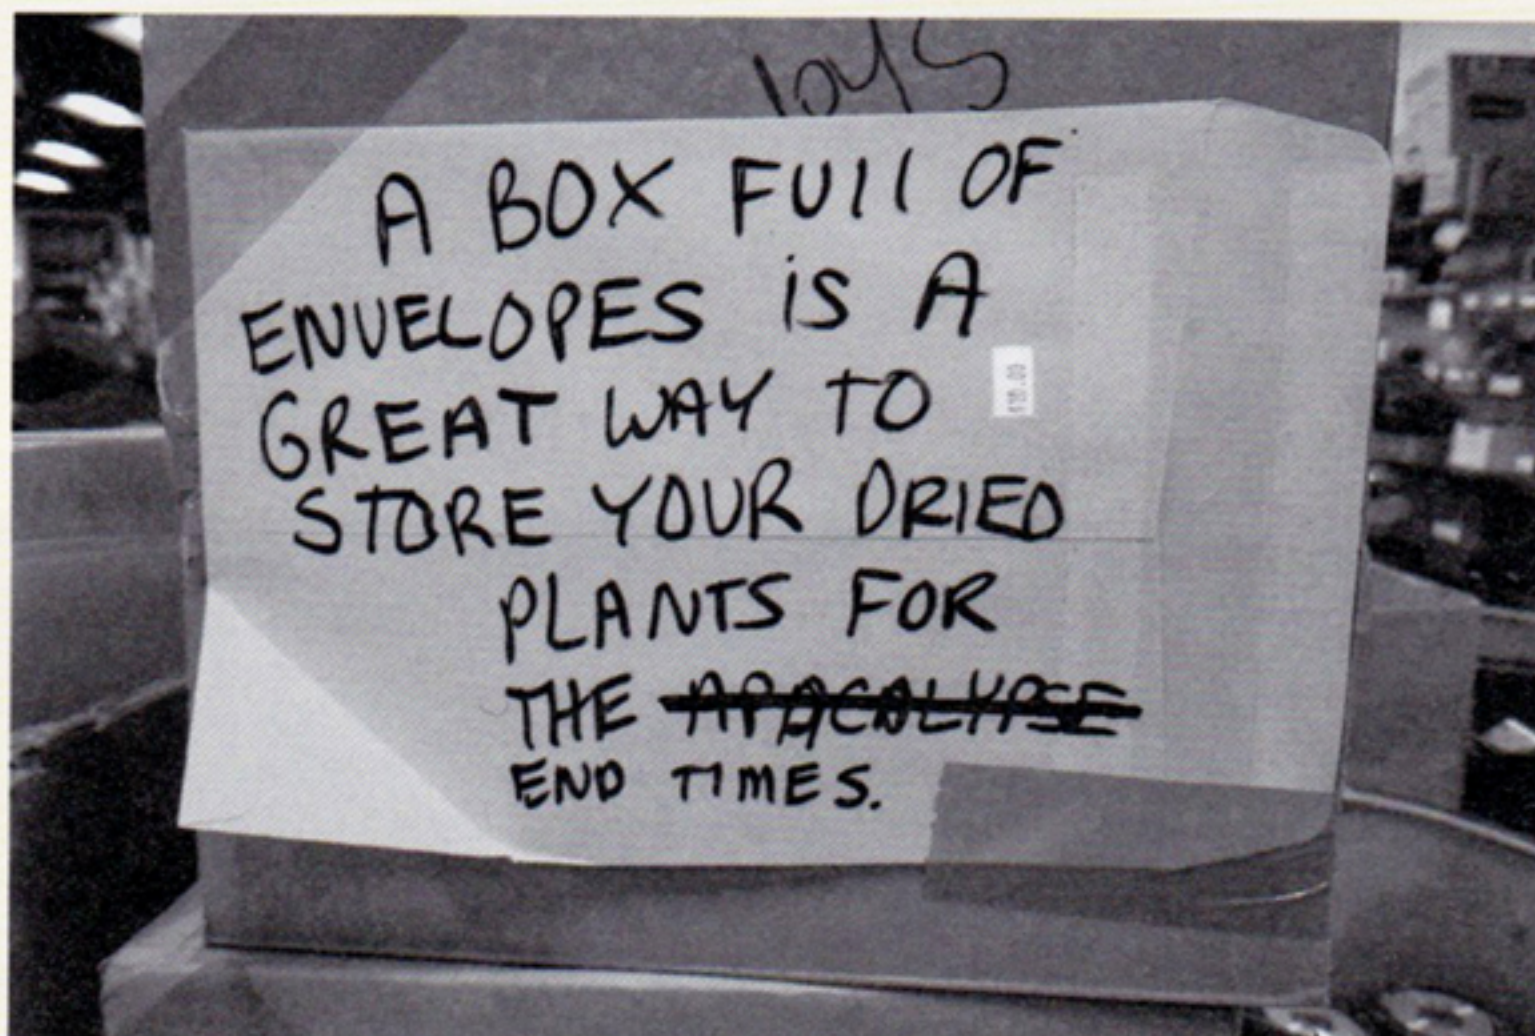 toys
A BOX FUll OF
ENVELOPES iS A
GREAT WAY TO
STORE YOUR DRIED
PLANTS FOR
THE APOCALYPSE
END TIMES.